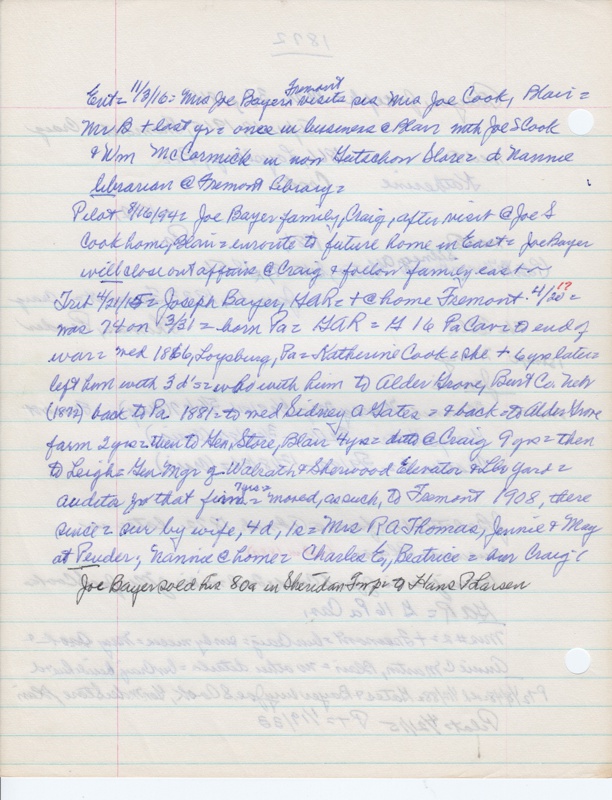 Ent= 11/3/16 = Mrs Joe Bayer, Fremont visits sis Mrs Joe Cook, Blair =
Mr B + last yr = once in business @ Blair with Joe S Cook
& Wm McCormick in now Gutschow Store = d Nannie
librarian @ Fremont Library =
Pilot 8/16/94 = Joe Bayer family, Craig, after visit @ Joe S
Cook home, Blair = enroute to future home in East = Joe Bayer
will close out affairs @ Craig & follow family east =
Trib 4/21/15 = Joseph Bayer, GAR = + @ home Fremont 4/20 = 1?
was 74 on 3/31 = born Pa = GAR = G 16 Pa Cav = to end of
war = wed 1866, Loysburg, Pa = Katherine Cook = she + 6 yrs later =
left him with 3 d's = who with him to Alder Grove, Burt Co. Neb
(1872) back to Pa 1881 = to wed Sidney A Gates = & back = to Alder Grove
farm 2 yrs = then to Gen. Store, Blair 4 yrs = ditto @ Craig 9 yrs = then
to Leigh = Gen Mgr of Walrath & Sherwood Elevator & Lbr yard =
auditor for that firm 7 yrs = = moved, as such, to Fremont 1908, there
since = sur by wife, 4 d, 1 s = Mrs R A Thomas, Jennie & May
at Pender, Nannie @ home = Charles E, Beatrice = bur Craig (
Joe Bayer sold his 80a in Sheridan Twp = to Hans P Larsen